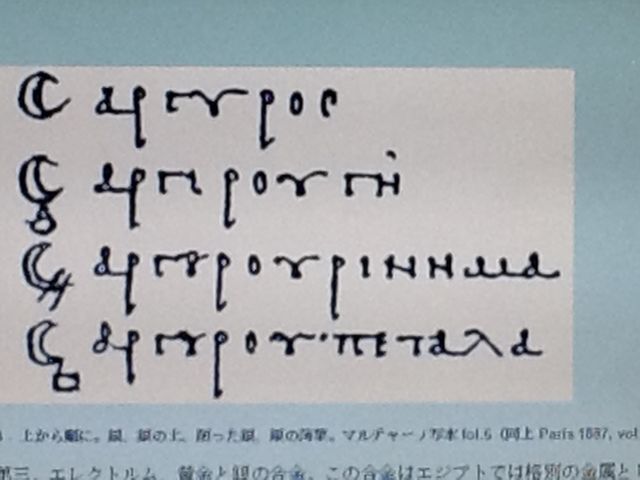 αργυρος
αργυρου γη
αργυρου ρινημα
αργυρου πεταλα
上から順に。銀、銀の土、削った銀、銀の薄葉。マルチャーノ写本 fol.6 (同上 Paris 1887, vol
第三、エレクトルム、黄金と銀の合金。この合金はエジプトでは格別の金属と